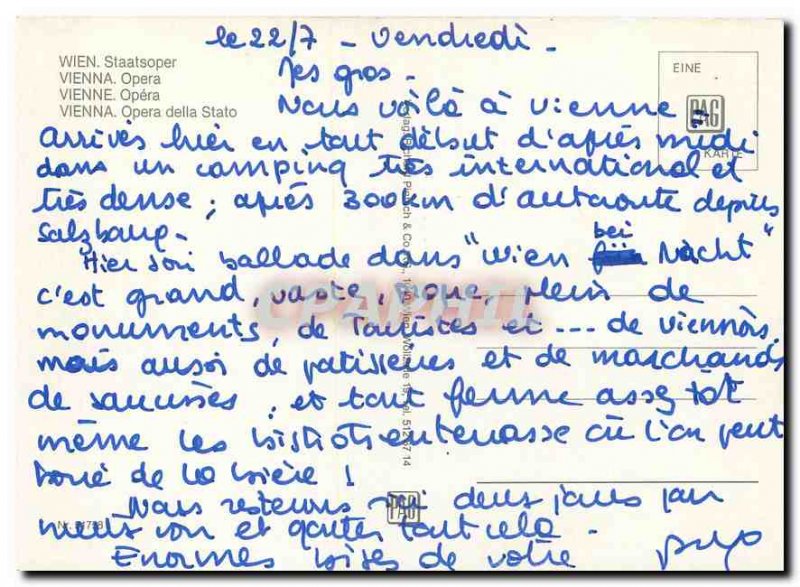 le 22/7 - Vendredi -
WIEN. Staatsoper
VIENNA. Opera
VIENNE. Opéra
VIENNA. Opera della Stato
EINE
PAG
KARTE
Mes gros -
Nous voilà à Vienne -
arrivés hier en tout début d'après midi
dans un camping très international et
très dense ; après 300km d'autoroute depuis
Salzbourg -
Hier soir ballade dans "Wien bei Nacht"
c'est grand, vaste, plein de
monuments, de Touristes et --- de Viennois
mais aussi de patissiers et de marchands
de saucisses ; et tout ferme assez tôt
même les bistrots en terrasse où l'on peut
boire de la bière !
Nous resterons ici deux jours pour
mieux voir et goûter tout cela -
Enormes bises de votre
PAG